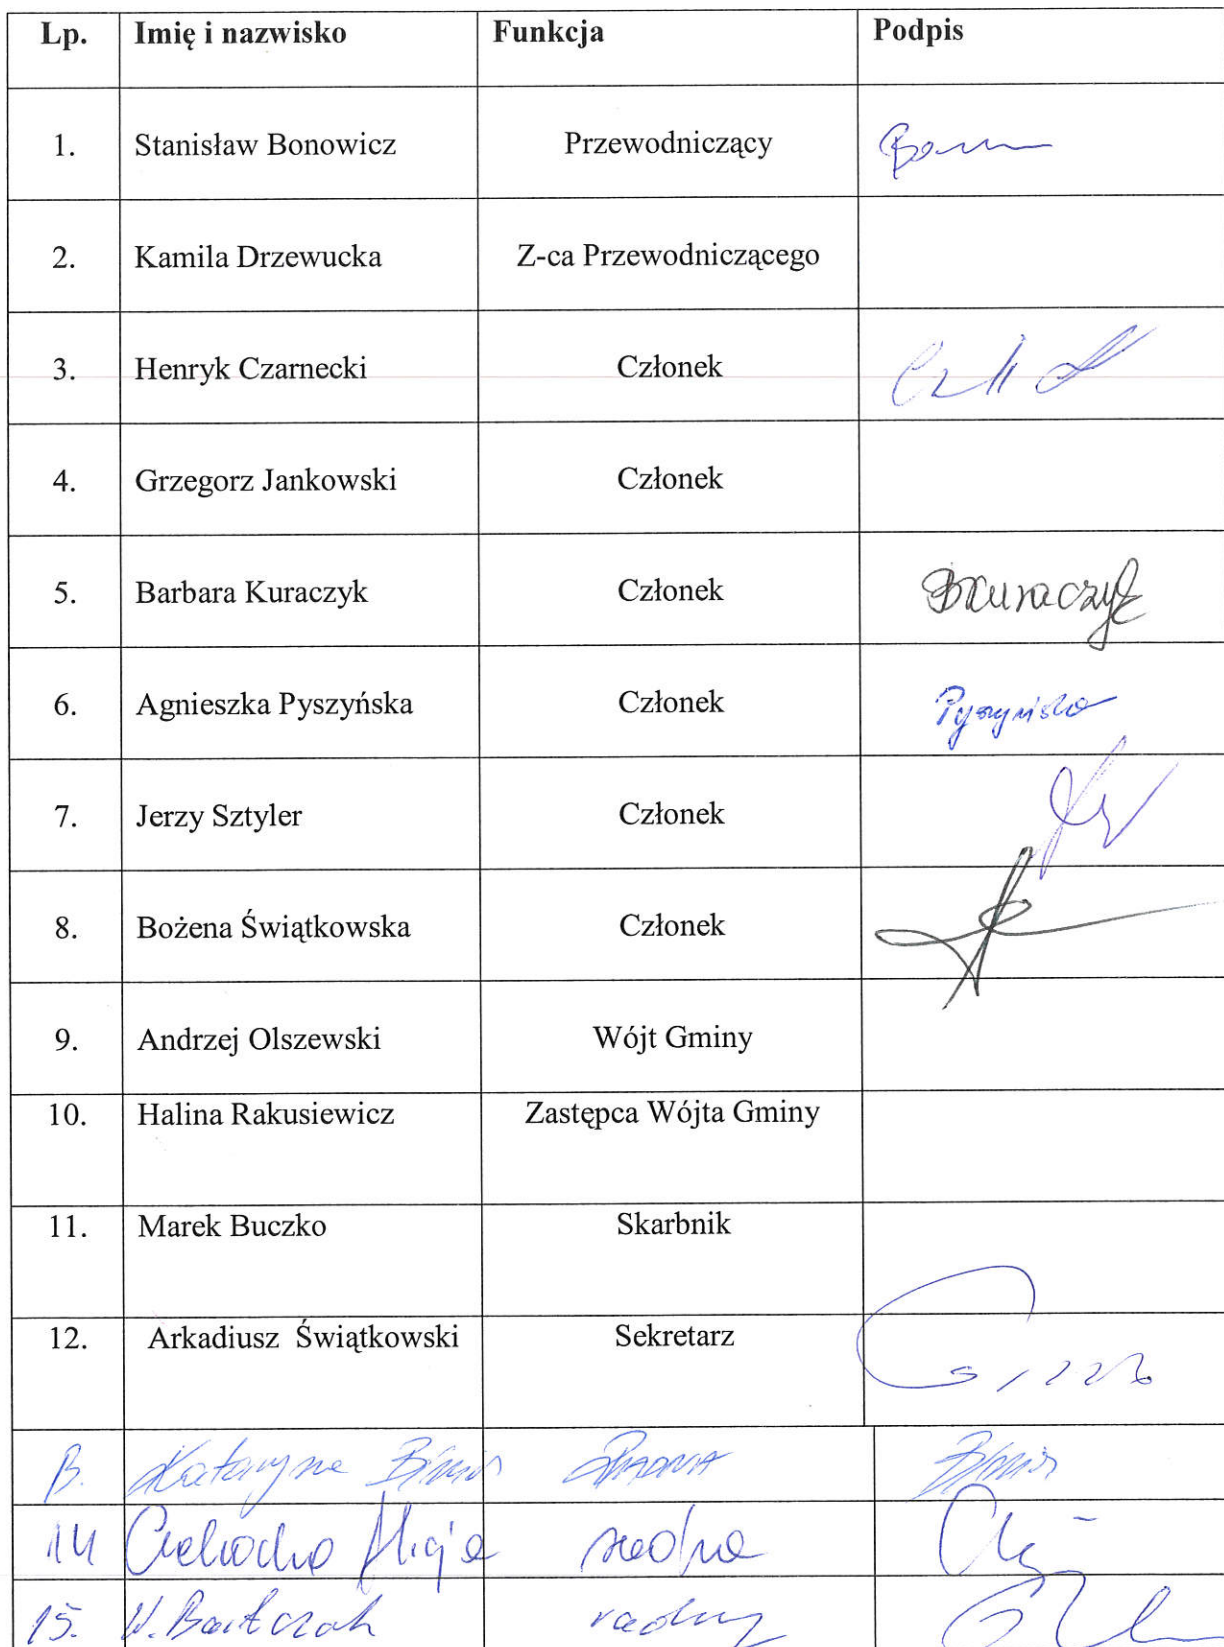 Lp. Imię i nazwisko Funkcja Podpis
1. Stanisław Bonowicz Przewodniczący
2. Kamila Drzewucka Z-ca Przewodniczącego
3. Henryk Czarnecki Członek
4. Grzegorz Jankowski Członek
5. Barbara Kuraczyk Członek BKuraczyk
6. Agnieszka Pyszyńska Członek Pyszyńska
7. Jerzy Sztyler Członek
8. Bożena Świątkowska Członek
9. Andrzej Olszewski Wójt Gminy
10. Halina Rakusiewicz Zastępca Wójta Gminy
11. Marek Buczko Skarbnik
12. Arkadiusz Świątkowski Sekretarz
13. Katarzyna RADNA
14 Alicja radna
15. W. Bartczak radny